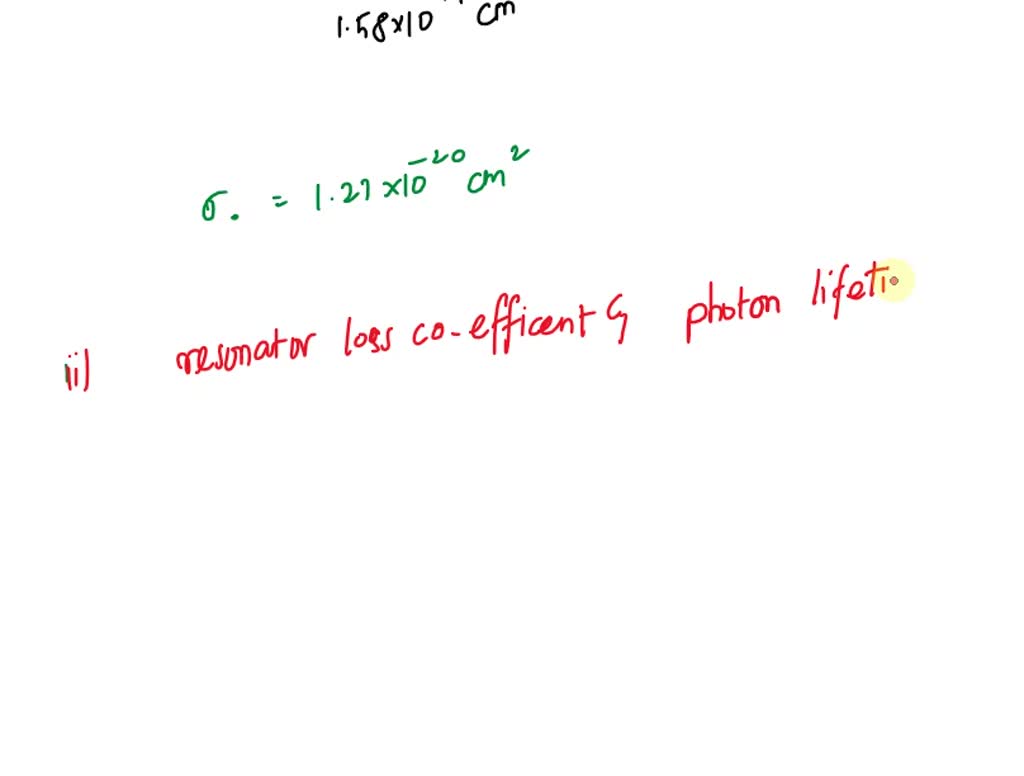 1.58×10 cm
σ. = 1.27×10⁻²⁰ cm²
ii) resonator loss co-efficent & photon lifeti